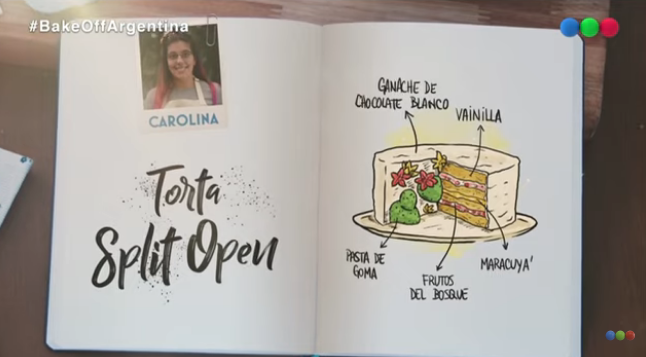 #BakeOffArgentina
CAROLINA
Torta
Split Open
GANACHE DE
CHOCOLATE BLANCO
VAINILLA
PASTA DE
GOMA
FRUTOS
DEL BOSQUE
MARACUYA'